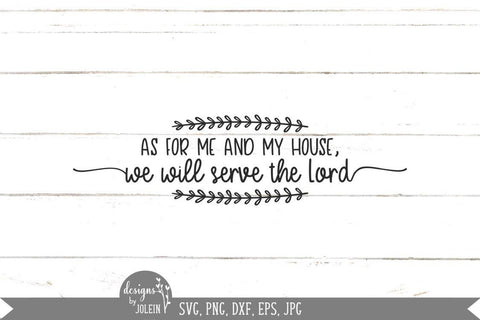 AS FOR ME AND MY HOUSE,
we will serve the Lord
designs
by
JOLEIN
SVG, PNG, DXF, EPS, JPG